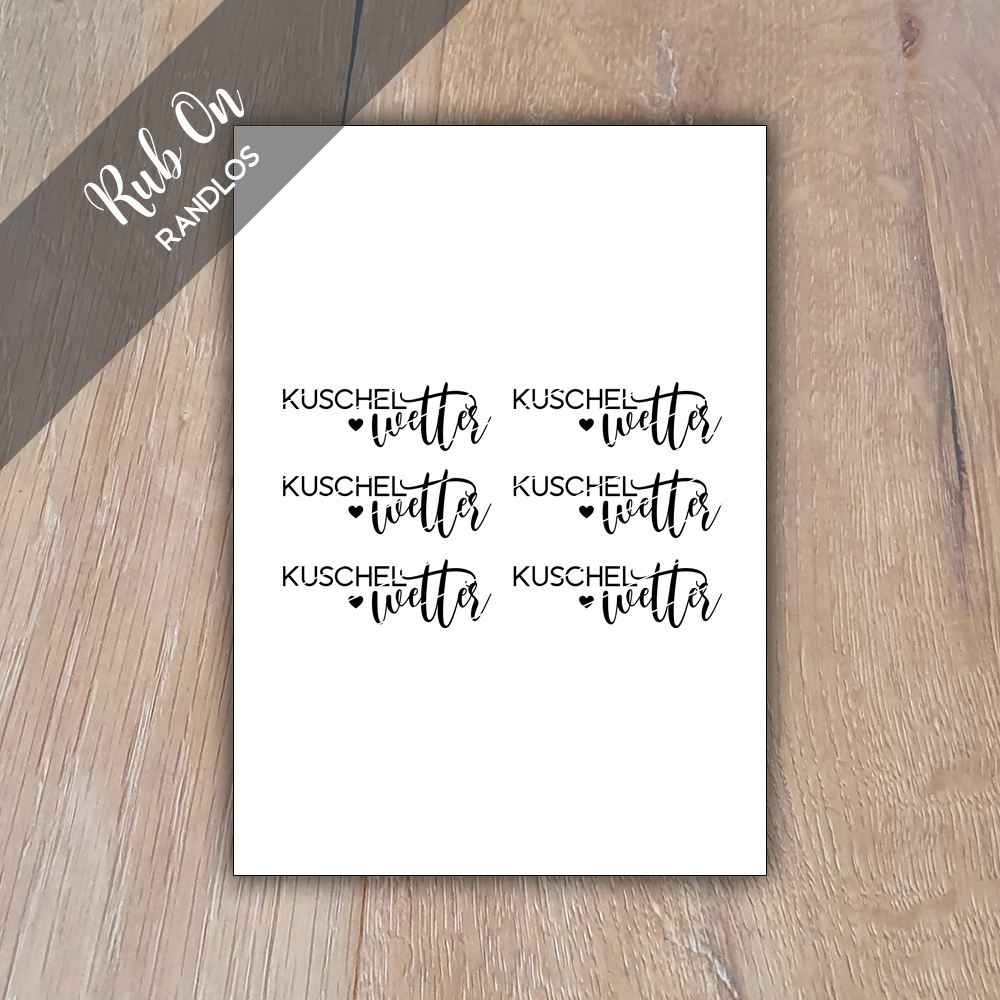 Rub On
RANDLOS
KUSCHEL KUSCHEL
wetter wetter
KUSCHEL KUSCHEL
wetter wetter
KUSCHEL KUSCHEL
wetter wetter